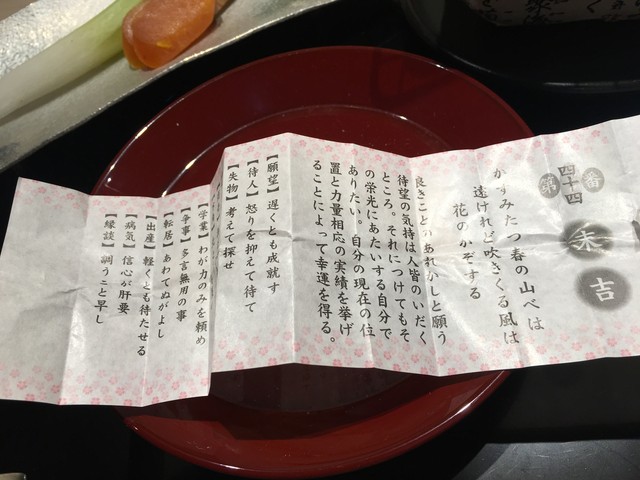 第四十四番
末吉
かすみたつ春の山べは
遠けれど吹きくる風は
花のかぞする
良きことのあれかしと願う
待望の気持は人皆のいだく
ところ。それにつけてもそ
の栄光にあたいする自分で
ありたい。自分の現在の位
置と力量相応の実績を挙げ
ることによって幸運を得る。
【願望】遅くとも成就す
【待人】怒りを抑えて待て
【失物】考えて探せ
【学業】わが力のみを頼め
【争事】多言無用の事
【転居】あわてぬがよし
【出産】軽くとも待たせる
【病気】信心が肝要
【縁談】調うこと早し